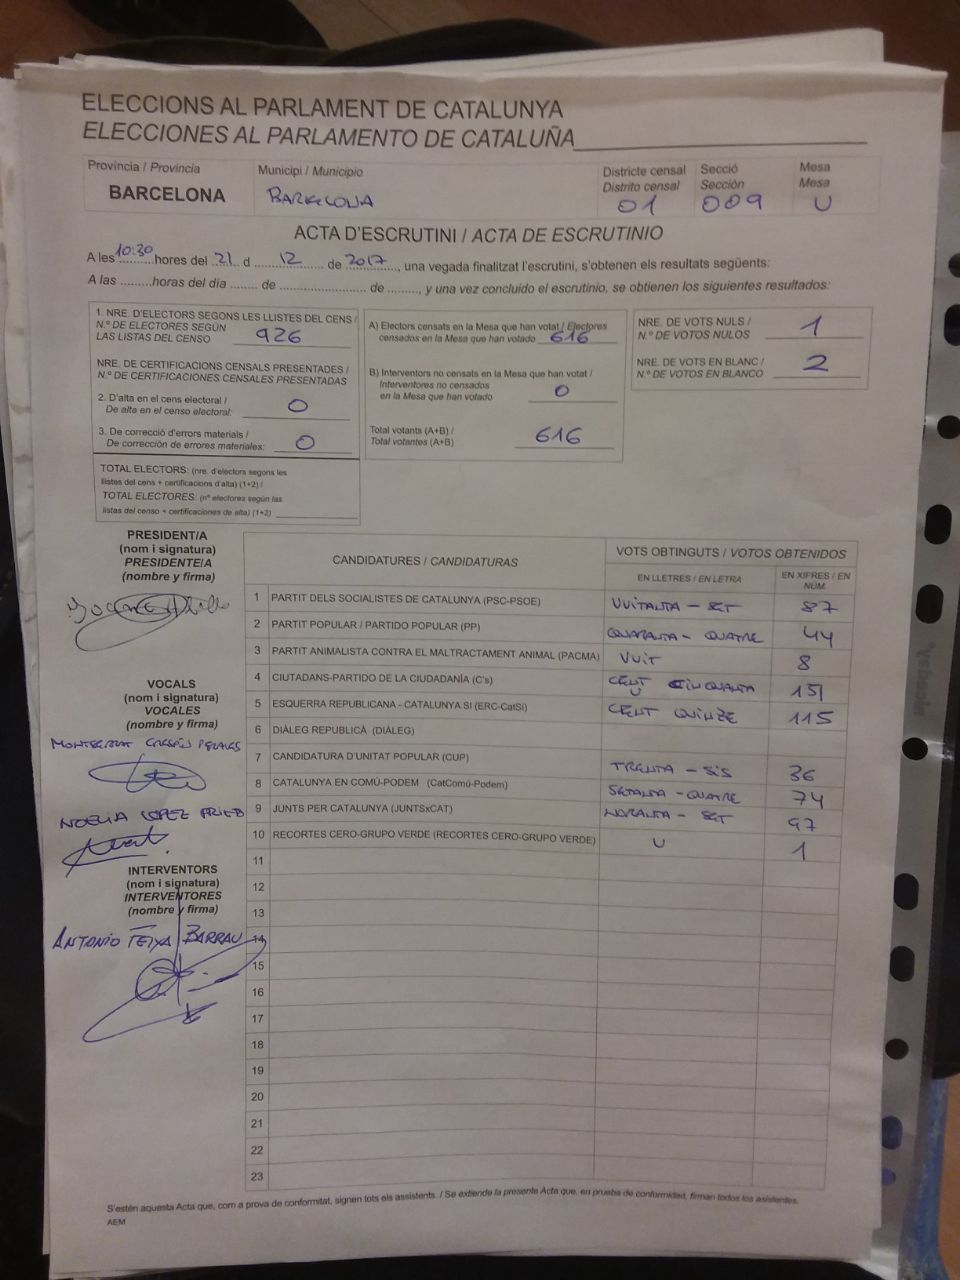 ELECCIONS AL PARLAMENT DE CATALUNYA
ELECCIONES AL PARLAMENTO DE CATALUÑA
Provincia / Provincia
BARCELONA
Municipi / Municipio
BARCELONA
Districte censal
Distrito censal
01
Secció
Sección
009
Mesa
Mesa
U
ACTA D'ESCRUTINI / ACTA DE ESCRUTINIO
A les 10:30 hores del 21 d 12 de 2017, una vegada finalitzat l'escrutini, s'obtenen els resultats següents:
A las .........horas del día ...... de ........................ de ........, y una vez concluido el escrutinio, se obtienen los siguientes resultados:
1. NRE. D'ELECTORS SEGONS LES LLISTES DEL CENS /
N.º DE ELECTORES SEGÚN
LAS LISTAS DEL CENSO 926
NRE. DE CERTIFICACIONS CENSALS PRESENTADES /
N.º DE CERTIFICACIONES CENSALES PRESENTADAS
2. D'alta en el cens electoral /
De alta en el censo electoral: 0
3. De correcció d'errors materials /
De corrección de errores materiales: 0
TOTAL ELECTORS: (nre. d'electors segons les
llistes del cens + certificacions d'alta) (1+2) /
TOTAL ELECTORES: (nº electores según las
listas del censo + certificaciones de alta) (1+2)
A) Electors censats en la Mesa que han votat / Electores
censados en la Mesa que han votado 616
B) Interventors no censats en la Mesa que han votat /
Interventores no censados
en la Mesa que han votado 0
Total votants (A+B) /
Total votantes (A+B) 616
NRE. DE VOTS NULS /
N.º DE VOTOS NULOS 1
NRE. DE VOTS EN BLANC /
N.º DE VOTOS EN BLANCO 2
PRESIDENT/A
(nom i signatura)
PRESIDENTE/A
(nombre y firma)
VOCALS
(nom i signatura)
VOCALES
(nombre y firma)
MONTSERRAT CRESPÍN PERALES
NOELIA LOPEZ
INTERVENTORS
(nom i signatura)
INTERVENTORES
(nombre y firma)
ANTONIO FEIXA BARRAU
CANDIDATURES / CANDIDATURAS
VOTS OBTINGUTS / VOTOS OBTENIDOS
EN LLETRES / EN LETRA
EN XIFRES / EN NÚM.
1 PARTIT DELS SOCIALISTES DE CATALUNYA (PSC-PSOE) VUITANTA - SET 87
2 PARTIT POPULAR / PARTIDO POPULAR (PP) QUARANTA - QUATRE 44
3 PARTIT ANIMALISTA CONTRA EL MALTRACTAMENT ANIMAL (PACMA) VUIT 8
4 CIUTADANS-PARTIDO DE LA CIUDADANÍA (C's) CENT CINQUANTA U 151
5 ESQUERRA REPUBLICANA - CATALUNYA SÍ (ERC-CatSí) CENT QUINZE 115
6 DIÀLEG REPUBLICÀ (DIÀLEG)
7 CANDIDATURA D'UNITAT POPULAR (CUP) TRENTA - SIS 36
8 CATALUNYA EN COMÚ-PODEM (CatComú-Podem) SETANTA - QUATRE 74
9 JUNTS PER CATALUNYA (JUNTSxCAT) NORANTA - SET 97
10 RECORTES CERO-GRUPO VERDE (RECORTES CERO-GRUPO VERDE) U 1
11
12
13
14
15
16
17
18
19
20
21
22
23
S'estén aquesta Acta que, com a prova de conformitat, signen tots els assistents. / Se extiende la presente Acta que, en prueba de conformidad, firman todos los asistentes.
AEM